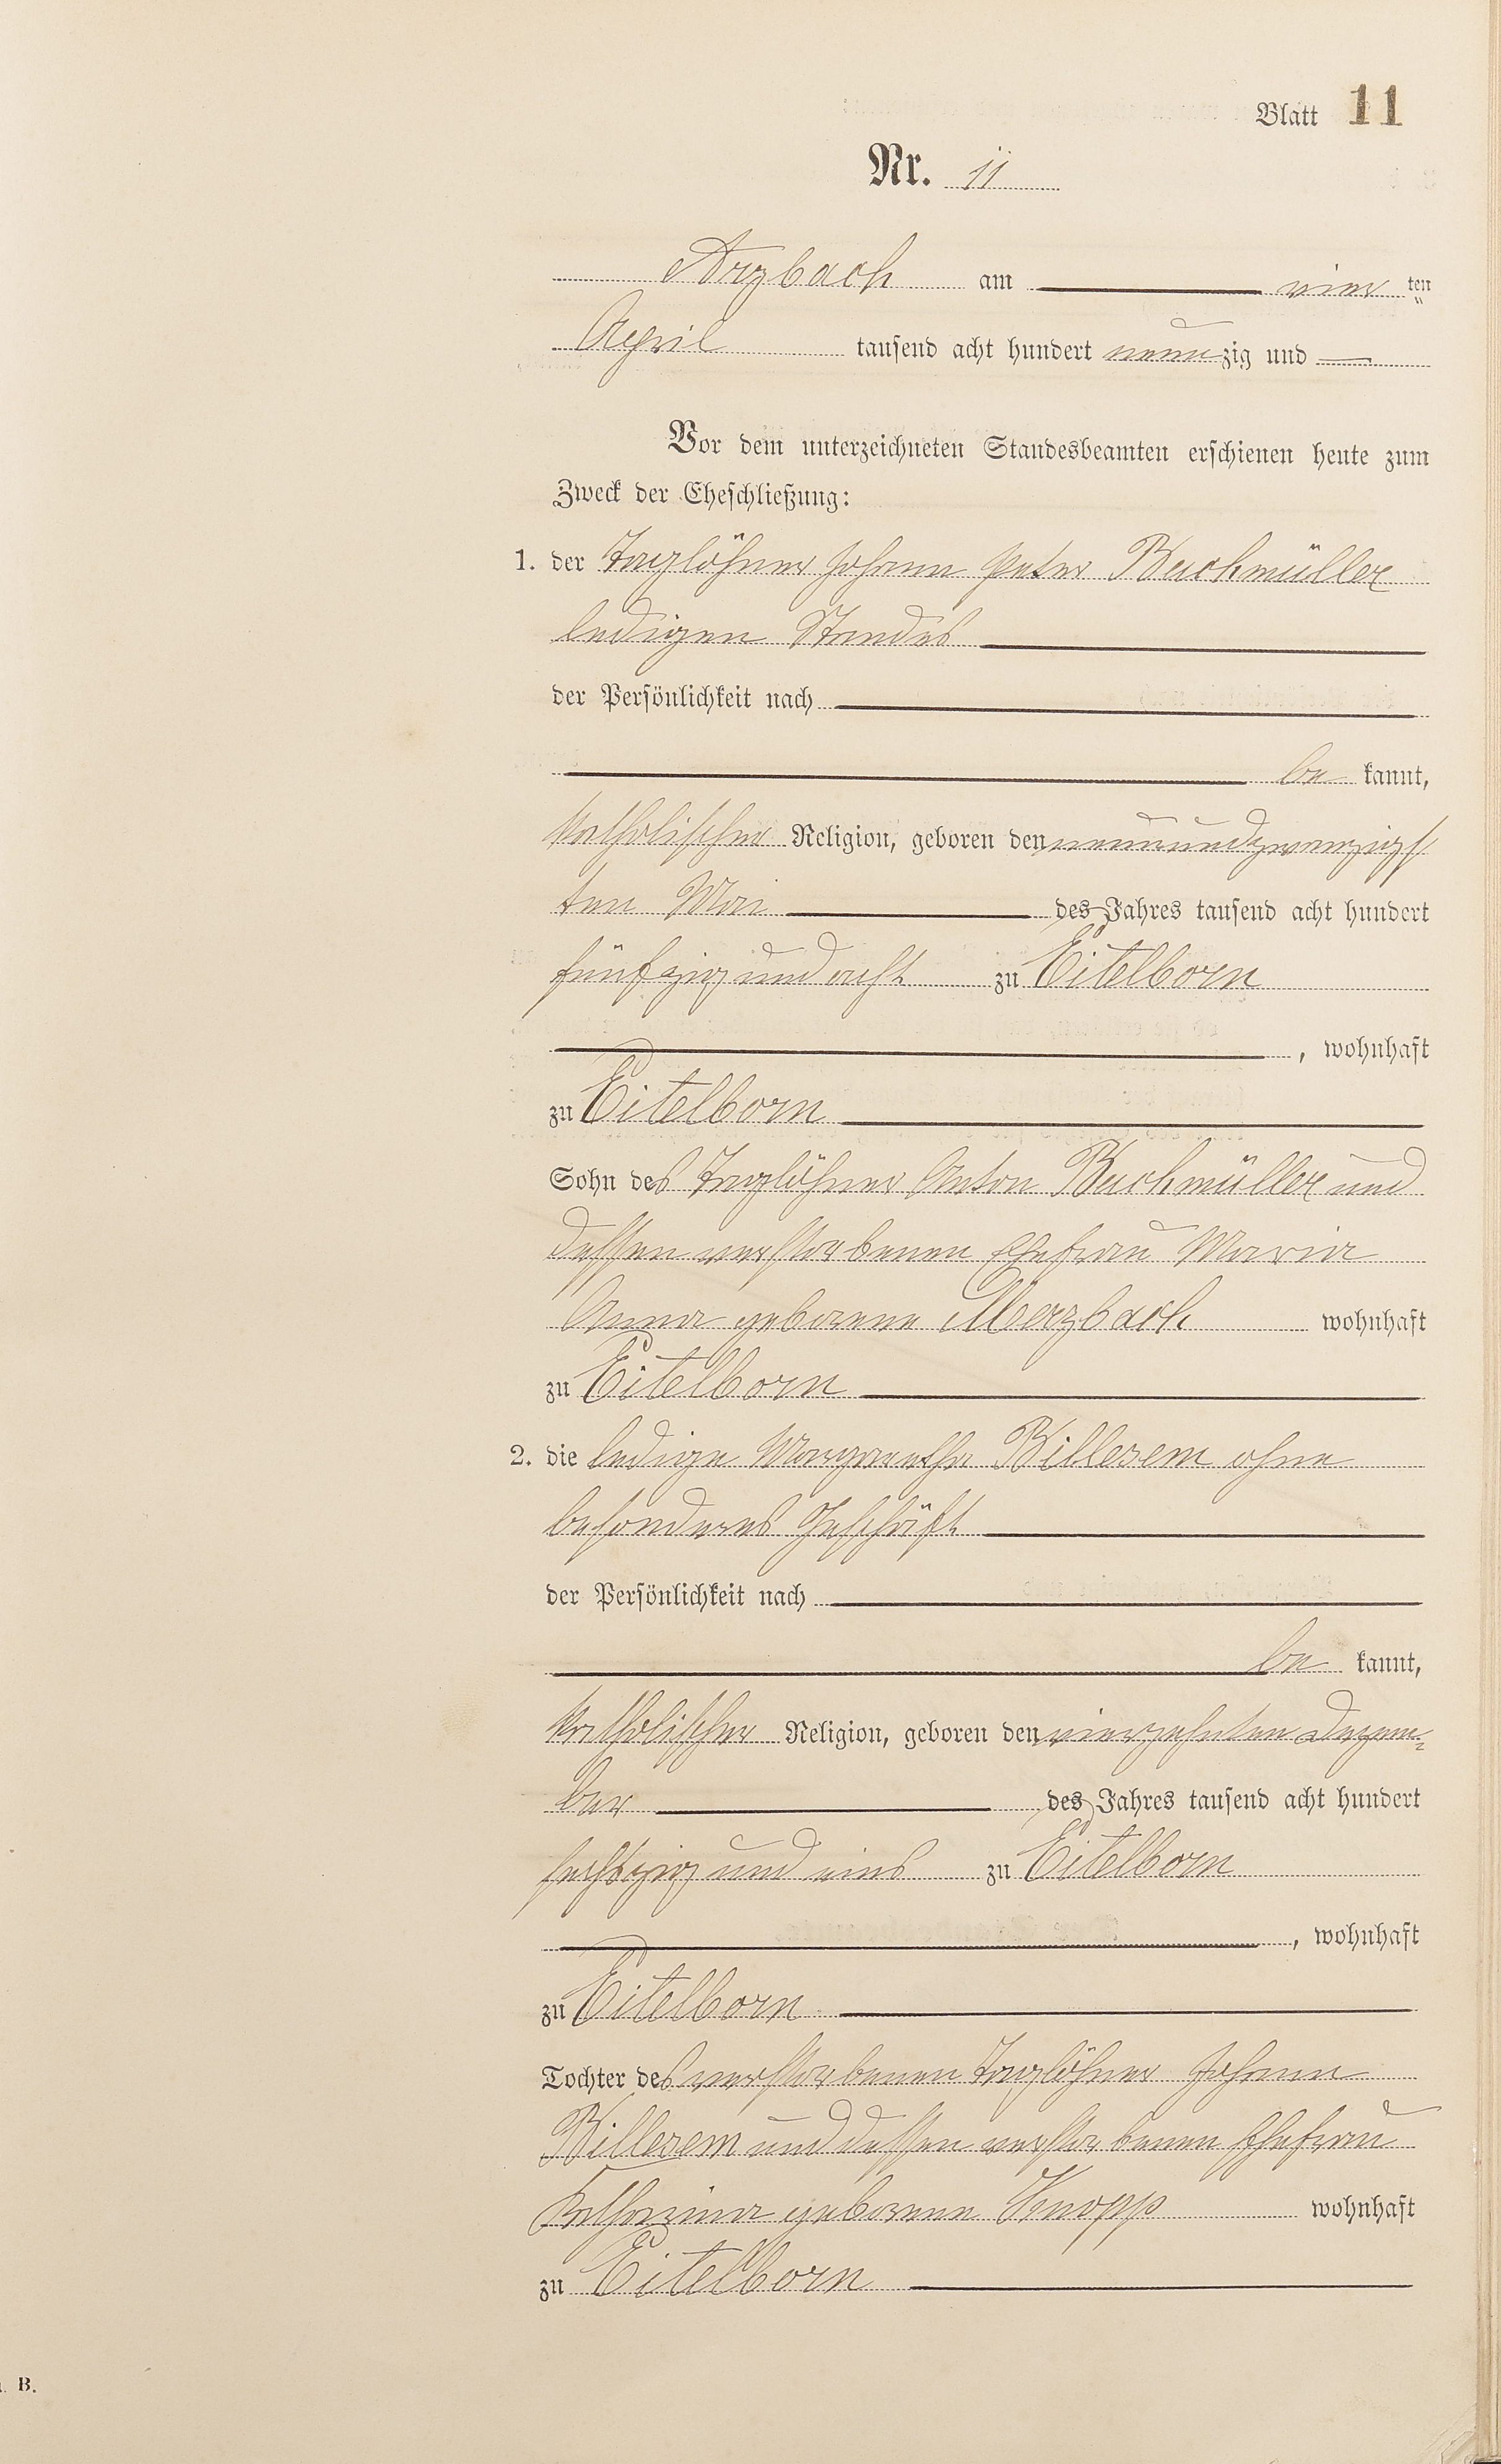 Blatt 11
Nr. 11
Arzbach am vier ten
April tausend acht hundert neunzig und
Vor dem unterzeichneten Standesbeamten erschienen heute zum
Zweck der Eheschließung:
1. der Taglöhner Johann Peter Buchmüller
ledigen Standes
der Persönlichkeit nach
be kannt,
katholischer Religion, geboren den neunundzwanzigs
ten Mai des Jahres tausend acht hundert
fünfzig und acht zu Eitelborn
, wohnhaft
zu Eitelborn
Sohn des Taglöhner Anton Buchmüller und
dessen verstorbenen Ehefrau Maria
Anna geborene Merzbach wohnhaft
zu Eitelborn
2. die ledige Margaretha Billesem ohne
besonderes Geschäft
der Persönlichkeit nach
be kannt,
katholischer Religion, geboren den vierzehnten Dezem-
ber des Jahres tausend acht hundert
sechszig und eins zu Eitelborn
, wohnhaft
zu Eitelborn
Tochter des verstorbenen Taglöhner Johann
Billesem und dessen verstorbenen Ehefrau
Katharina geborene Knopp wohnhaft
zu Eitelborn
B.